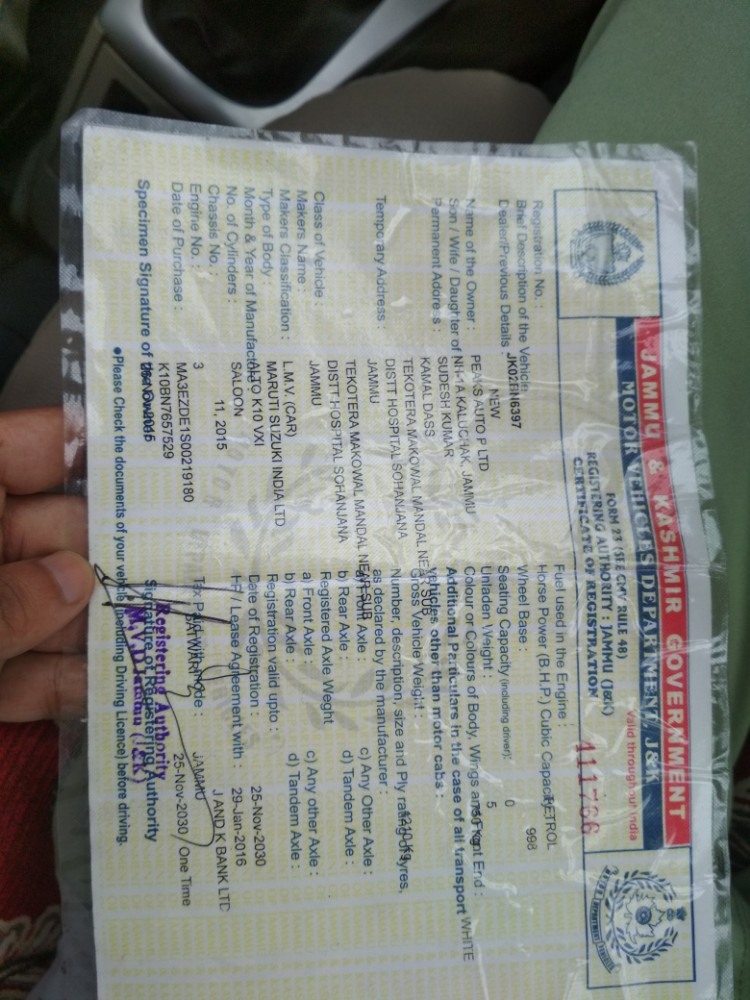 JAMMU & KASHMIR GOVERNMENT
MOTOR VEHICLES DEPARTMENT J&K
Valid throughout India
FORM 23 (SEE CMV RULE 48)
REGISTERING AUTHORITY : JAMMU (J&K)
CERTIFICATE OF REGISTRATION
411786
Registration No. : JK02BN6397
Brief Description of the Vehicle NEW
Dealer/Previous Details : AUTO P LTD
NH-1A KALUCHAK, JAMMU
Name of the Owner : SUDESH KUMAR
Son / Wife / Daughter of KAMAL DASS
Permanent Address : TEKOTERA MAKOWAL MANDAL NEAR SUB
DISTT HOSPITAL SOHANJANA
JAMMU
Temporary Address : TEKOTERA MAKOWAL MANDAL NEAR SUB
DISTT HOSPITAL SOHANJANA
JAMMU
Class of Vehicle : L.M.V. (CAR)
Makers Name : MARUTI SUZUKI INDIA LTD
Makers Classification : ALTO K10 VXI
Type of Body : SALOON
Month & Year of Manufacture 11, 2015
No. of Cylinders : 3
Chassis No. : MA3EZDE1S00219180
Engine No. : K10BN7657529
Date of Purchase :
Specimen Signature of the Owner
Fuel used in the Engine : PETROL
Horse Power (B.H.P.) Cubic Capacity 998
Wheel Base : 0
Seating Capacity (including driver): 5
Unladen Weight :
Colour or Colours of Body, Wings and Front End : WHITE
Additional Particulars in the case of all transport
vehicles other than motor cabs :
Gross Vehicle Weight :
Number, description, size and Ply rating of tyres,
as declared by the manufacturer :
a) Front Axle : c) Any Other Axle :
b) Rear Axle : d) Tandem Axle :
Registered Axle Weght
a) Front Axle : c) Any other Axle :
b) Rear Axle : d) Tandem Axle :
Registration valid upto : 25-Nov-2030
Date of Registration : 29-Jan-2016
HP/ Lease Agreement with : J AND K BANK LTD
SATWARI JAMMU
Tax Paid 25-Nov-2030 / One Time
Signature of Registering Authority
Registering Authority
M.V.D. Jammu (J&K)
●Please Check the documents of your vehicle (including Driving Licence) before driving.